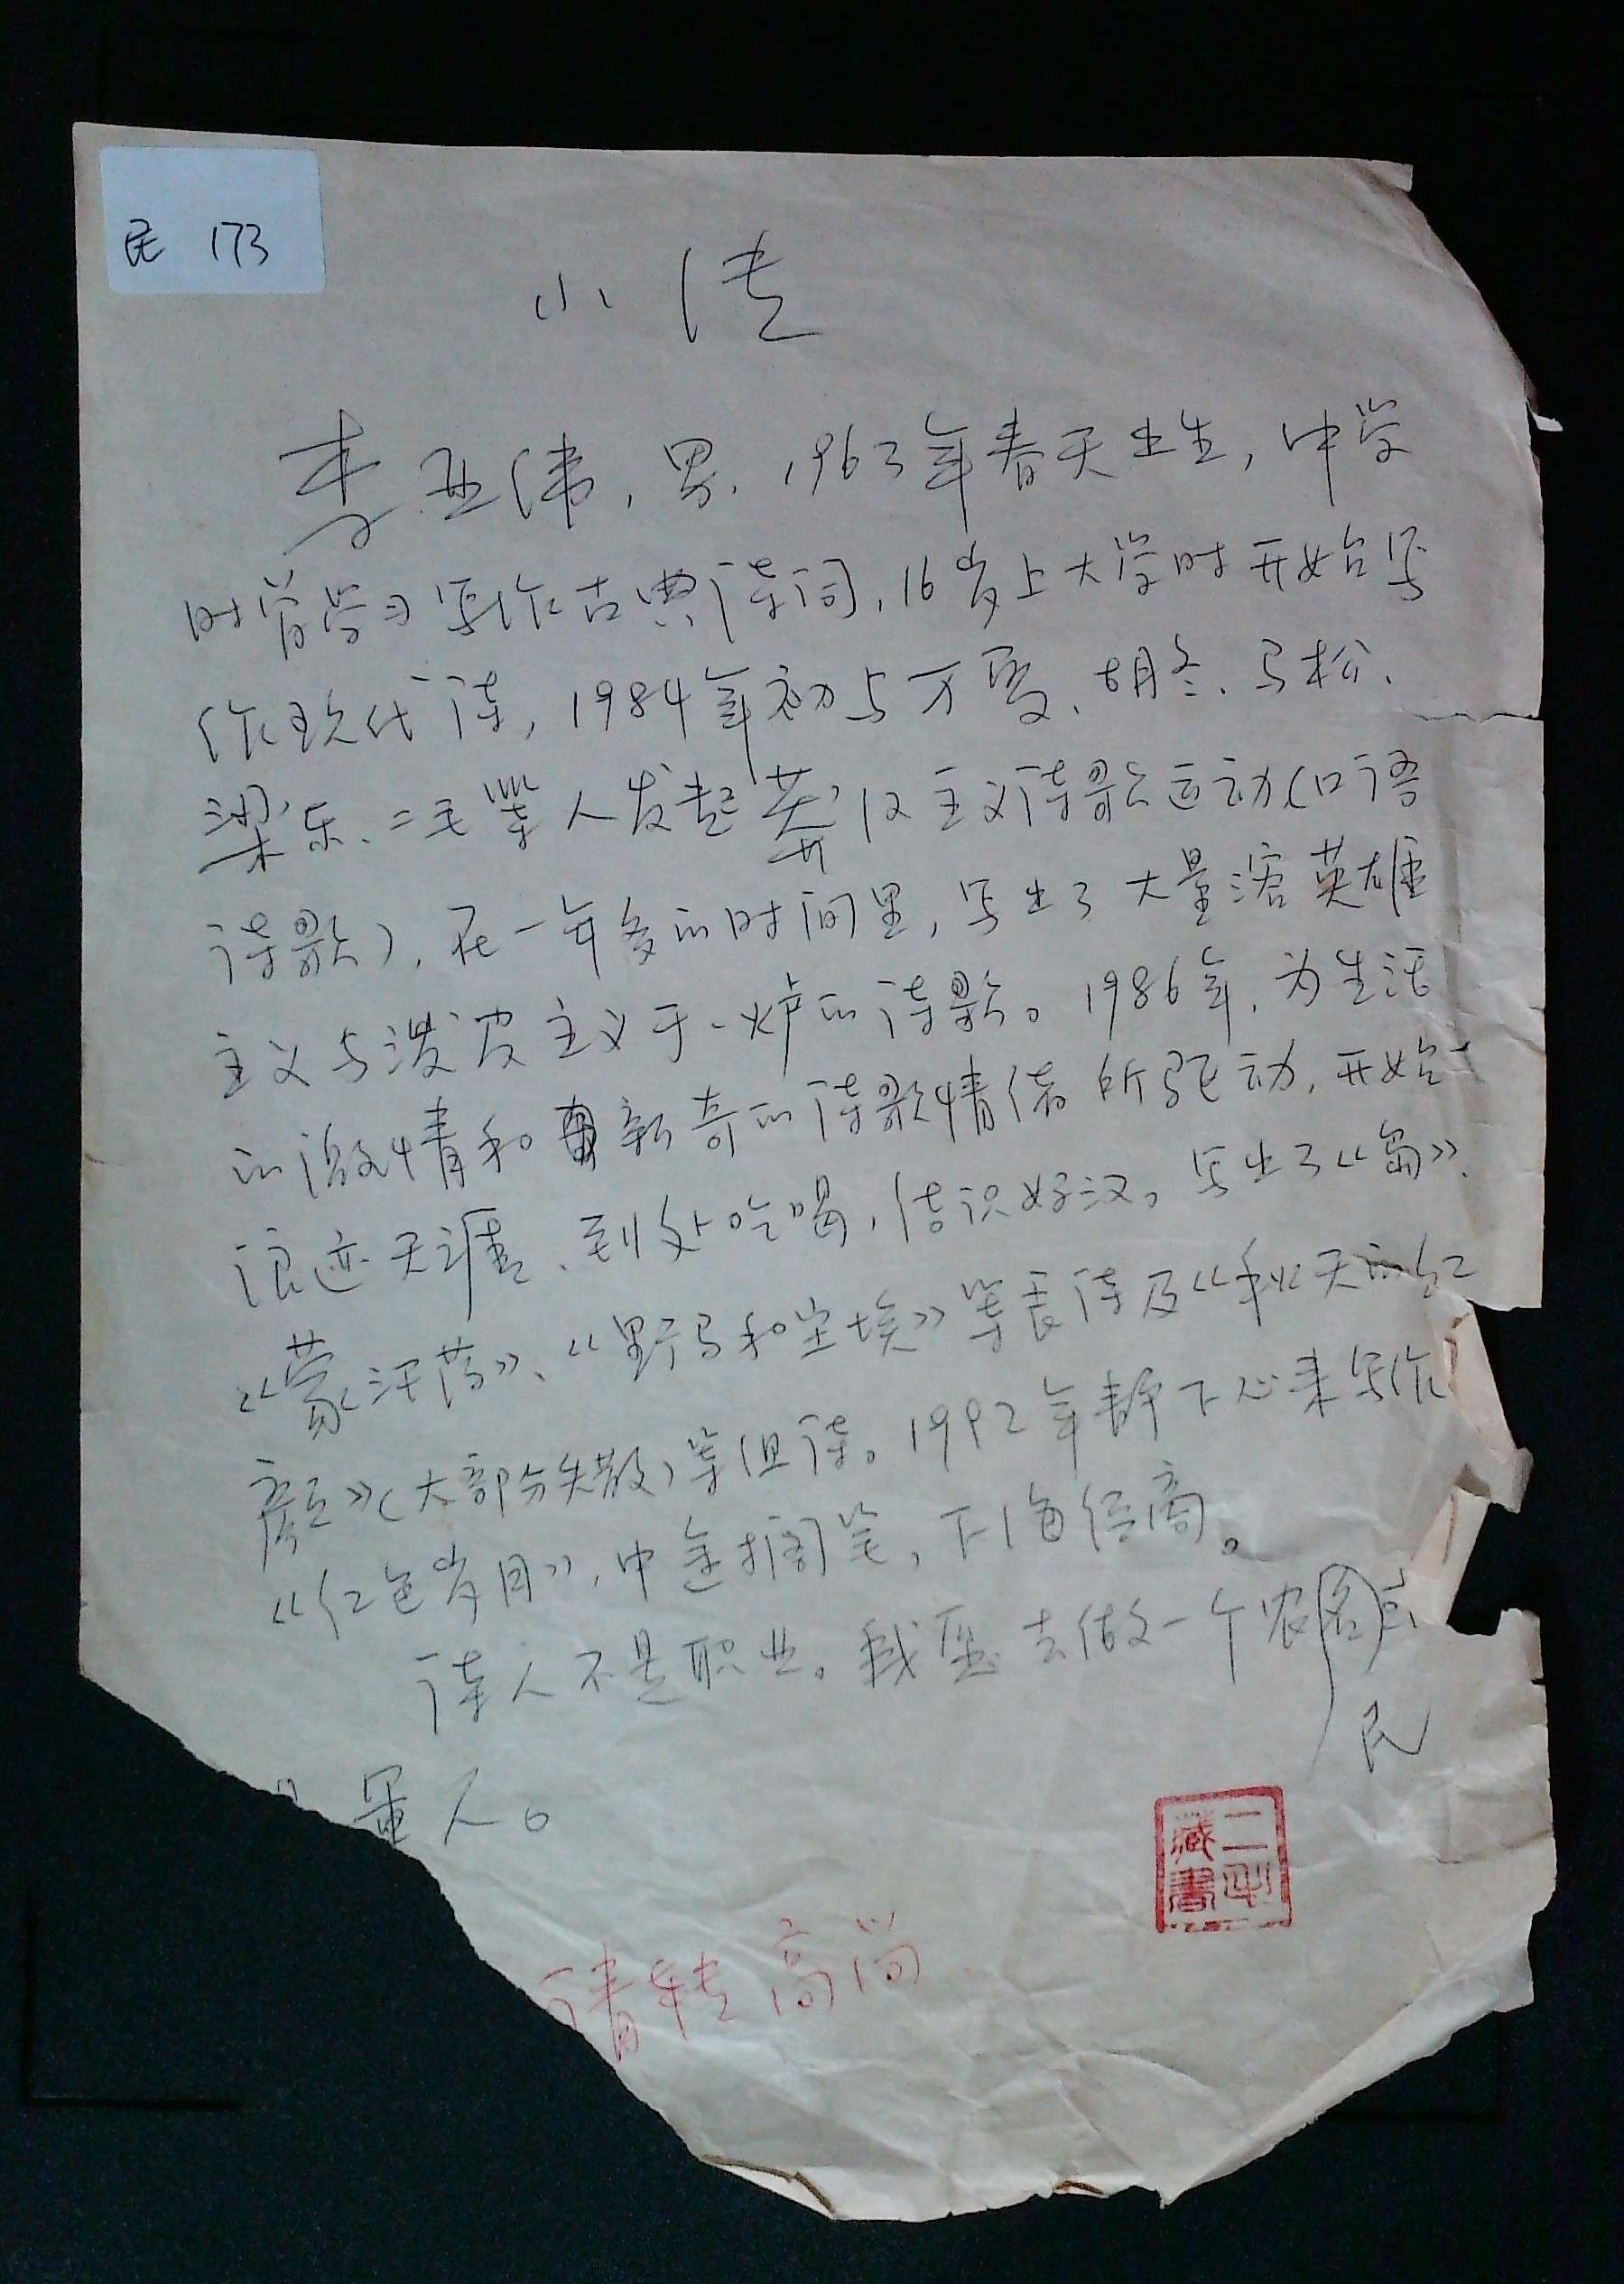 民 173
小传
李亚伟，男，1963年春天出生，中学
时曾学习写作古典诗词，16岁上大学时开始写
作现代诗，1984年初与万夏、胡冬、马松、
梁乐、二毛等人发起莽汉主义诗歌运动（口语
诗歌），在一年多的时间里，写出了大量溶英雄
主义与泼皮主义于一炉的诗歌。1986年，为生活
的激情和新奇的诗歌情绪所驱动，开始
浪迹天涯、到处吃喝，结识好汉。写出了《岛》、
《蒙汗药》、《野马和尘埃》等长诗及《秋天的红
颜》（大部分失散）等组诗。1992年静下心来写作
《红色岁月》，中途搁笔，下海经商。
诗人不是职业。我愿去做一个农
民
军人。
二毛
藏書
请转高尚